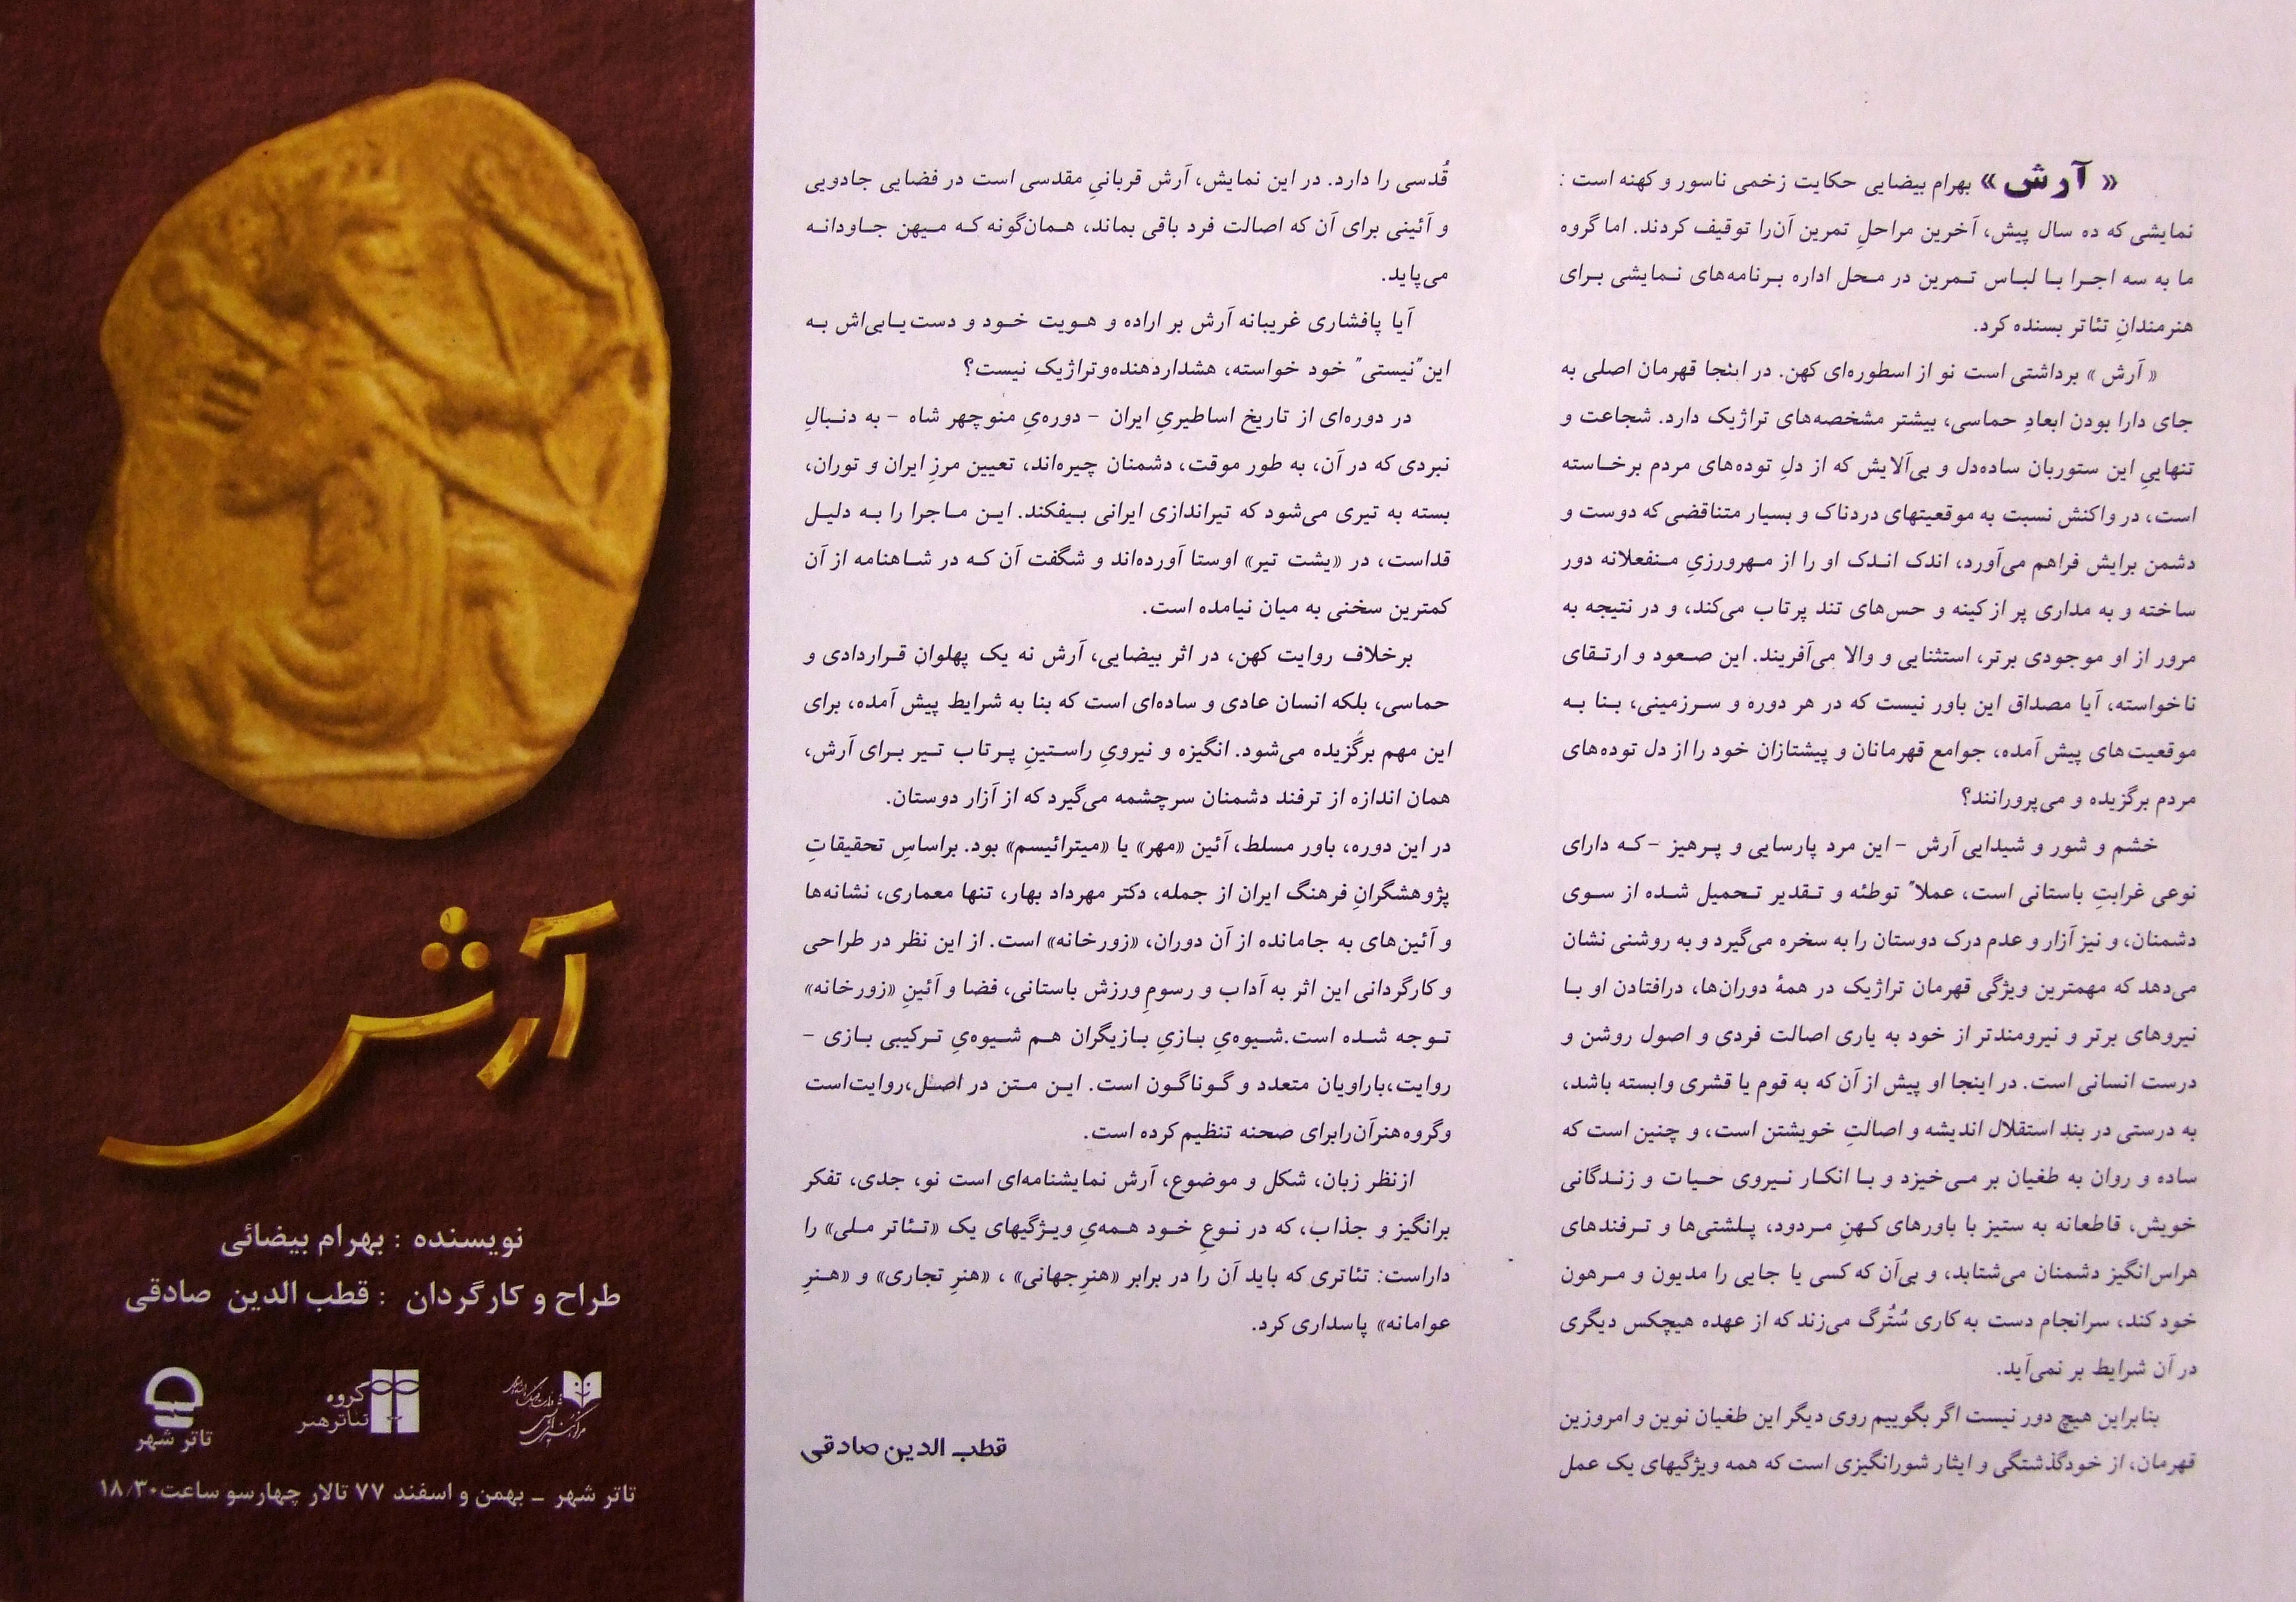 « آرش » بهرام بیضایی حکایت زخمی ناسور و کهنه است :
نمایشی که ده سال پیش، آخرین مراحلِ تمرین آن‌را توقیف کردند. اما گروه
ما به سه اجرا با لباس تمرین در محل اداره برنامه‌های نمایشی برای
هنرمندانِ تئاتر بسنده کرد.
« آرش » برداشتی است نو از اسطوره‌ای کهن. در اینجا قهرمان اصلی به
جای دارا بودن ابعادِ حماسی، بیشتر مشخصه‌های تراژیک دارد. شجاعت و
تنهاییِ این ستوربان ساده‌دل و بی‌آلایش که از دلِ توده‌های مردم برخاسته
است، در واکنش نسبت به موقعیتهای دردناک و بسیار متناقضی که دوست و
دشمن برایش فراهم می‌آورد، اندک اندک او را از مهرورزیِ منفعلانه دور
ساخته و به مداری پر از کینه و حس‌های تند پرتاب می‌کند، و در نتیجه به
مرور از او موجودی برتر، استثنایی و والا می‌آفریند. این صعود و ارتقای
ناخواسته، آیا مصداق این باور نیست که در هر دوره و سرزمینی، بنا به
موقعیت‌های پیش آمده، جوامع قهرمانان و پیشتازان خود را از دل توده‌های
مردم برگزیده و می‌پرورانند؟
خشم و شور و شیدایی آرش - این مرد پارسایی و پرهیز - که دارای
نوعی غرابتِ باستانی است، عملاً توطئه و تقدیر تحمیل شده از سوی
دشمنان، و نیز آزار و عدم درک دوستان را به سخره می‌گیرد و به روشنی نشان
می‌دهد که مهمترین ویژگی قهرمان تراژیک در همهٔ دوران‌ها، درافتادن او با
نیروهای برتر و نیرومندتر از خود به یاری اصالت فردی و اصول روشن و
درست انسانی است. در اینجا او پیش از آن که به قوم یا قشری وابسته باشد،
به درستی در بندِ استقلال اندیشه و اصالتِ خویشتن است، و چنین است که
ساده و روان به طغیان بر می‌خیزد و با انکار نیروی حیات و زندگانی
خویش، قاطعانه به ستیز با باورهای کهنِ مردود، پلشتی‌ها و ترفندهای
هراس‌انگیز دشمنان می‌شتابد، و بی‌آن که کسی یا جایی را مدیون و مرهون
خود کند، سرانجام دست به کاری سُتُرگ می‌زند که از عهده هیچکس دیگری
در آن شرایط بر نمی‌آید.
بنابراین هیچ دور نیست اگر بگوییم روی دیگر این طغیان نوین و امروزین
قهرمان، از خودگذشتگی و ایثار شورانگیزی است که همه ویژگیهای یک عمل
قُدسی را دارد. در این نمایش، آرش قربانیِ مقدسی است در فضایی جادویی
و آئینی برای آن که اصالت فرد باقی بماند، همان‌گونه که میهن جاودانه
می‌پاید.
آیا پافشاری غریبانه آرش بر اراده و هویت خود و دست‌یابی‌اش به
این "نیستی" خود خواسته، هشداردهنده‌وتراژیک نیست؟
در دوره‌ای از تاریخ اساطیریِ ایران - دوره‌یِ منوچهر شاه - به دنبالِ
نبردی که در آن، به طور موقت، دشمنان چیره‌اند، تعیین مرزِ ایران و توران،
بسته به تیری می‌شود که تیراندازی ایرانی بیفکند. این ماجرا را به دلیل
قداست، در «یشت تیر» اوستا آورده‌اند و شگفت آن که در شاهنامه از آن
کمترین سخنی به میان نیامده است.
برخلاف روایت کهن، در اثر بیضایی، آرش نه یک پهلوان قراردادی و
حماسی، بلکه انسان عادی و ساده‌ای است که بنا به شرایط پیش آمده، برای
این مهم برگزیده می‌شود. انگیزه و نیرویِ راستینِ پرتاب تیر برای آرش،
همان اندازه از ترفند دشمنان سرچشمه می‌گیرد که از آزار دوستان.
در این دوره، باور مسلط، آئین «مهر» یا «میترائیسم» بود. براساسِ تحقیقاتِ
پژوهشگرانِ فرهنگ ایران از جمله، دکتر مهرداد بهار، تنها معماری، نشانه‌ها
و آئین‌های به جامانده از آن دوران، «زورخانه» است. از این نظر در طراحی
و کارگردانی این اثر به آداب و رسومِ ورزش باستانی، فضا و آئینِ «زورخانه»
توجه شده است.شیوه‌یِ بازیِ بازیگران هم شیوه‌یِ ترکیبی بازی -
روایت،باراویان متعدد و گوناگون است. این متن در اصل،روایت‌است
وگروه‌هنرآن‌رابرای صحنه تنظیم کرده است.
ازنظر زبان، شکل و موضوع، آرش نمایشنامه‌ای است نو، جدی، تفکر
برانگیز و جذاب، که در نوعِ خود همه‌یِ ویژگیهای یک «تئاتر ملی» را
داراست: تئاتری که باید آن را در برابر «هنرِجهانی» ، «هنرِ تجاری» و «هنرِ
عوامانه» پاسداری کرد.
قطب الدین صادقی
آرش
نویسنده : بهرام بیضائی
طراح و کارگردان : قطب الدین صادقی
گروه
تئاترهنر
تاتر شهر
تاتر شهر _ بهمن و اسفند ۷۷ تالار چهارسو ساعت۱۸/۳۰